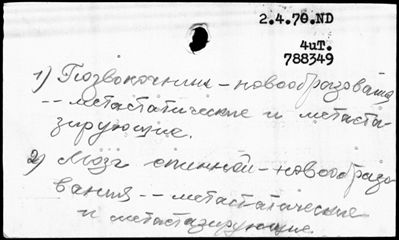 2.4.70.ND
4иТ.
788349
1) Позвоночник – новообразования
-- метастатические и метаста-
зирующие.
2) Мозг спинной – новообразо-
вания -- метастатические
и метастазирующие.